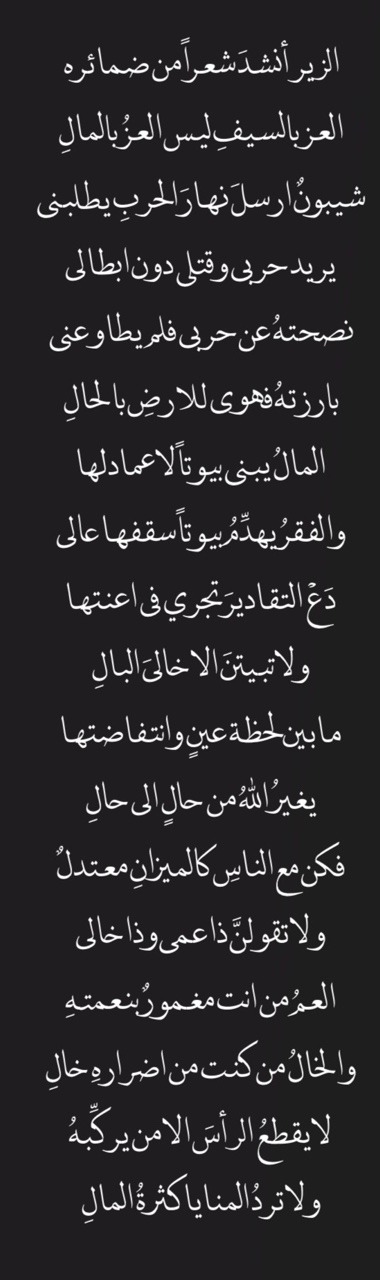 الزير أنشدَ شعراً من ضمائره
العز بالسيفِ ليس العزُ بالمالِ
شيبونٌ ارسلَ نهارَ الحربِ يطلبنى
يريد حربى وقتلى دون ابطالى
نصحتهُ عن حربى فلم يطاوعنى
بارزتهُ فهوى للارضِ بالحالِ
المالُ يبنى بيوتاً لاعمادلها
والفقرُ يهدِّمُ بيوتاً سقفها عالى
دَعْ التقاديرَ تجري فى اعنتها
ولا تبيتنَ الا خالىَ البالِ
مابين لحظة عينٍ وانتفاضتها
يغيرُ اللهُ من حالٍ الى حالِ
فكن مع الناسِ كالميزانِ معتدلٌ
ولا تقولنَّ ذا عمى وذا خالى
العمُ من انت مغمورٌ بنعمتهِ
والخالُ من كنت من اضرارهِ خالِ
لايقطعُ الرأسَ الا من يركِّبهُ
ولا تردُ المنايا كثرةُ المالِ